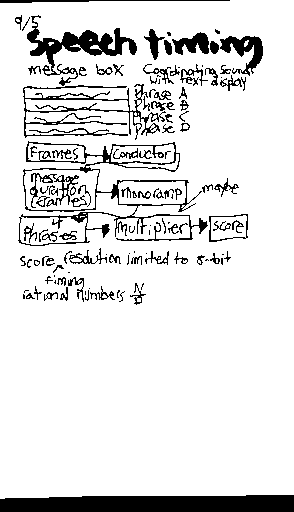 9/5
Speech timing
message box
Coordinating sound
with text display
Phrase A
Phrase B
Phrase C
Phrase D
Frames
Conductor
message
duration
(frames)
monoramp
maybe
4
Phrases
multiplier
score
score resolution limited to 8-bit
timing
rational numbers N/D